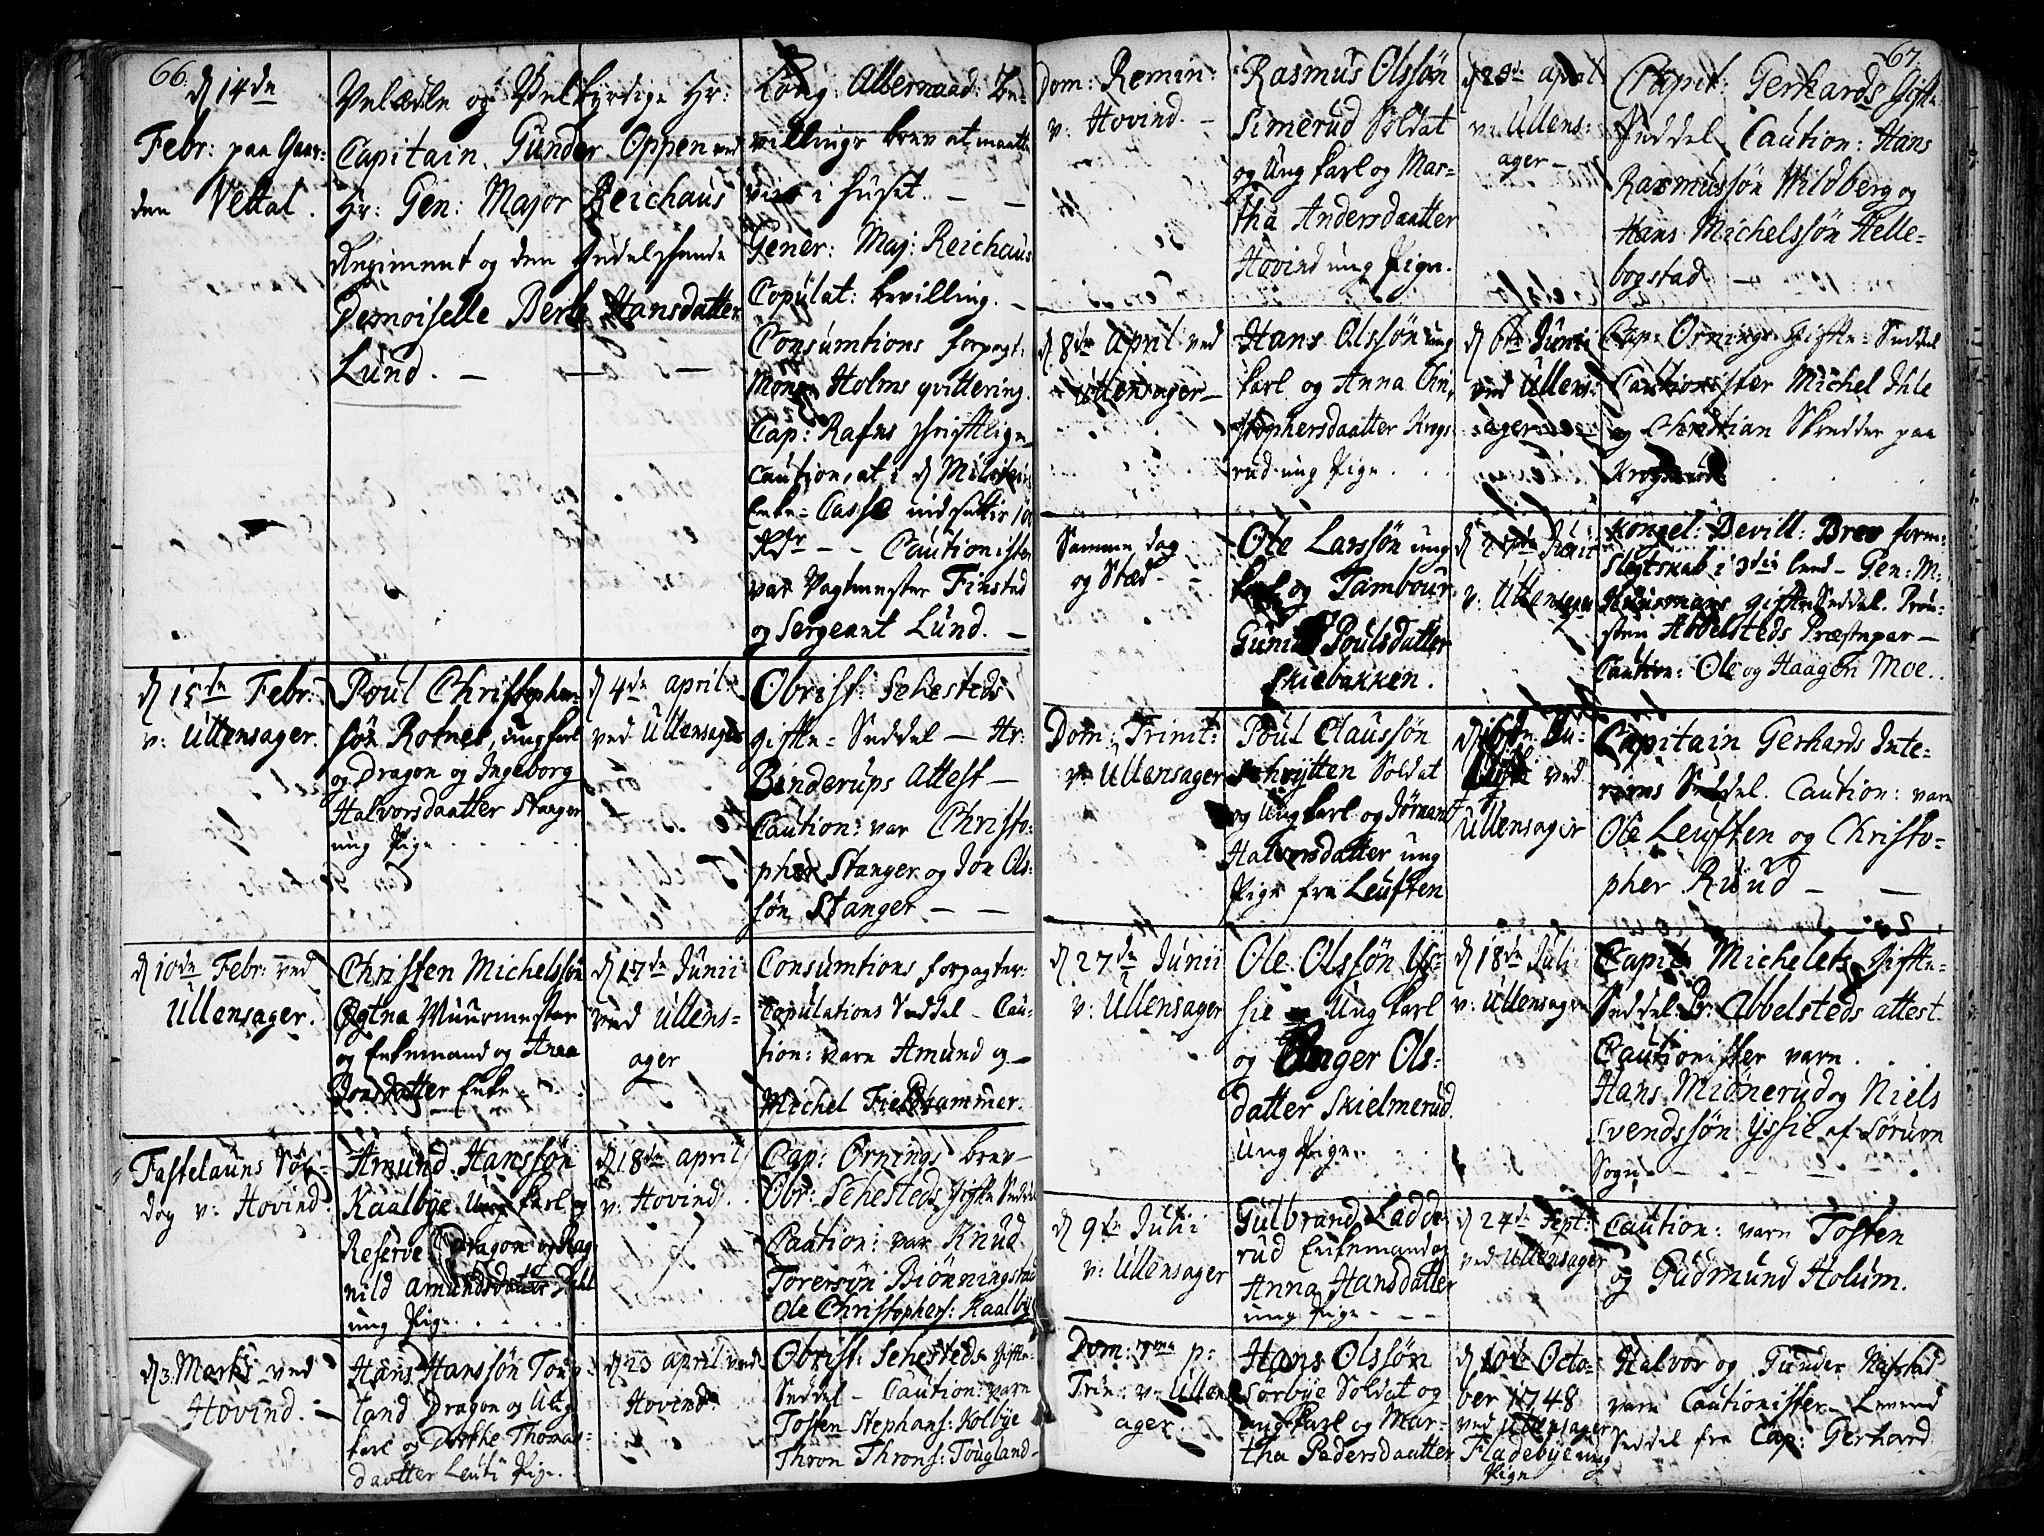 66.
d 14de
Febr: paa Gaar:
den Vettal.
Velædle og Velbyrdige Hr:
Capitain Gunder Oppen ved
Hr: Gen: Major Reichaus
Regiment og den Dydelskende
Demoiselle Berte Hansdatter
Lund. — — —
Kong: Allernaad: Be-
villings brev at maatte
vies i huset. — —
Gener: Maj: Reichaus
Copulat: bevilling. —
Consumtions forpagt:
Mons: Holms qvittering.
Cap: Rafns skriftlige
Caution, at i d Militair
Enke-Casse indsættes 100
Rdr — — Cautionister
var Vagtmester Finstad
og Sergeant Lund. —
d 15de Febr:
v: Ullensager.
Poul Christophers
søn Rotnes, ung karl
og Dragon og Ingeborg
Halvorsdaatter Stanger
ung Pige . . . . .
d 4de april:
ved Ullensager
Obrist: Sehesteds
gifte-Seddel — Hr:
Binderups Attest —
Caution: var Christo-
pher Stanger og Jon Ols-
søn Stanger — —
d 10de Febr: ved
Ullensager.
Christen Michelssøn
Øgtna Muurmester
og Enkemand og Anna
Jonsdatter Enke — .
d 17de Junii
ved Ullens-
ager
Consumtions forpagter:
Copulations Seddel — Cau-
tion: vare Amund og —
Michel Fieldhammer.
Fastelauns Søn-
dag v: Hovind.
Amund Hanssøn
Kaalbye Ung karl og
Reserve Dragon og Rag-
nild Amundsdatter
ung Pige. . . . .
d 18de april
v: Hovind.
Cap: Ornings brev —
Obr: Sehesteds Gifte Seddel
Caution: var Knud
Torersøn Biønningstad
Ole Christophers: Kaalbye
d 3. Marts ved
Hovind. —
Hans Hanssøn Toug-
land Dragon og Ung
karl og Dorthe Thomas-
daatter Leuti Pige. .
d 23 april ved
Hovind
Obrist: Sehesteds Gifte-
Seddel — Caution: vare
Tosten Stephans: Kolbye
Thron Throns: Tougland —
67.
Dom: Remin:
v: Hovind. —
Rasmus Olssøn
Simerud Soldat
og Ung karl og Mar-
tha Andersdaatter
Hovind ung Pige.
april
v: Ullens:
ager —
Capit: Gerhards Gifte
Seddel Caution: Hans
Rasmussøn Wildberg og
Hans Michelssøn Helle-
bogstad —
d 8de april ved
Ullensager —
Hans Olssøn ung
karl og Anna Chri-
stophersdaatter Krogs
rud ung Pige . .
d 6te Junii
ved Ullens:
ager —
Cap: Ornings Gifte-Seddel
Cautionister Michel Ihle
og Christian Skredder paa
Krogsrud
Samme dag
og Stæd. —
Ole Larssøn ung
karl og Tambour
Poulsdatter
Skiebakken.
d 27de
v: Ullensager
Kongel: Bevill: Brev form:
Slegtskab i 3die leed — Gen: M:
Huusmans gifte Seddel. Prou-
sten Abbelsteds Præstepar —
Caution: Ole og Haagen Moe..
Dom: Trinit:
v: Ullensager
Poul Claussøn
Schrytten Soldat
og Ung karl og Jørnand
Halvorsdatter ung
Pige fra Leuften
d 16de Au-
ved
Ullensager
Capitain Gerhards Inte-
rims Seddel. Caution: vare
Ole Leuften og Christo-
pher Ruud — —
d 27de Junii
v: Ullensager
Ole Olssøn Ys-
sie Ung karl
og Anger Ols-
datter Skielmerud
Ung Pige.
d 18de Juli
v: Ullensager
Capit Michelets Gifte-
Seddel. Abbelsteds attest
Cautionister vare .
Hans Miønerud og Niels
Svendssøn Yssie af Sørum
Sogn —
d 9de Julii
v: Ullensager
Gulbrand Ladde-
rud Enkemand og
Anna Hansdatter
ung Pige — —
d 24de Sept:
ved Ullensager
Caution: vare Tosten
og Gudmund Holum.
Dom: 7ma p:
Trin: v: Ullens
ager.
Hans Olssøn
Sørbye Soldat og
ung karl og Mar-
tha Pedersdaatter
d 10de Octo-
ber 1748
ved Ullensager
Fladebye ung
Pige
Halvor og Gunder Nafstad
vare Cautionister —
Seddel fra Cap: Gerhard